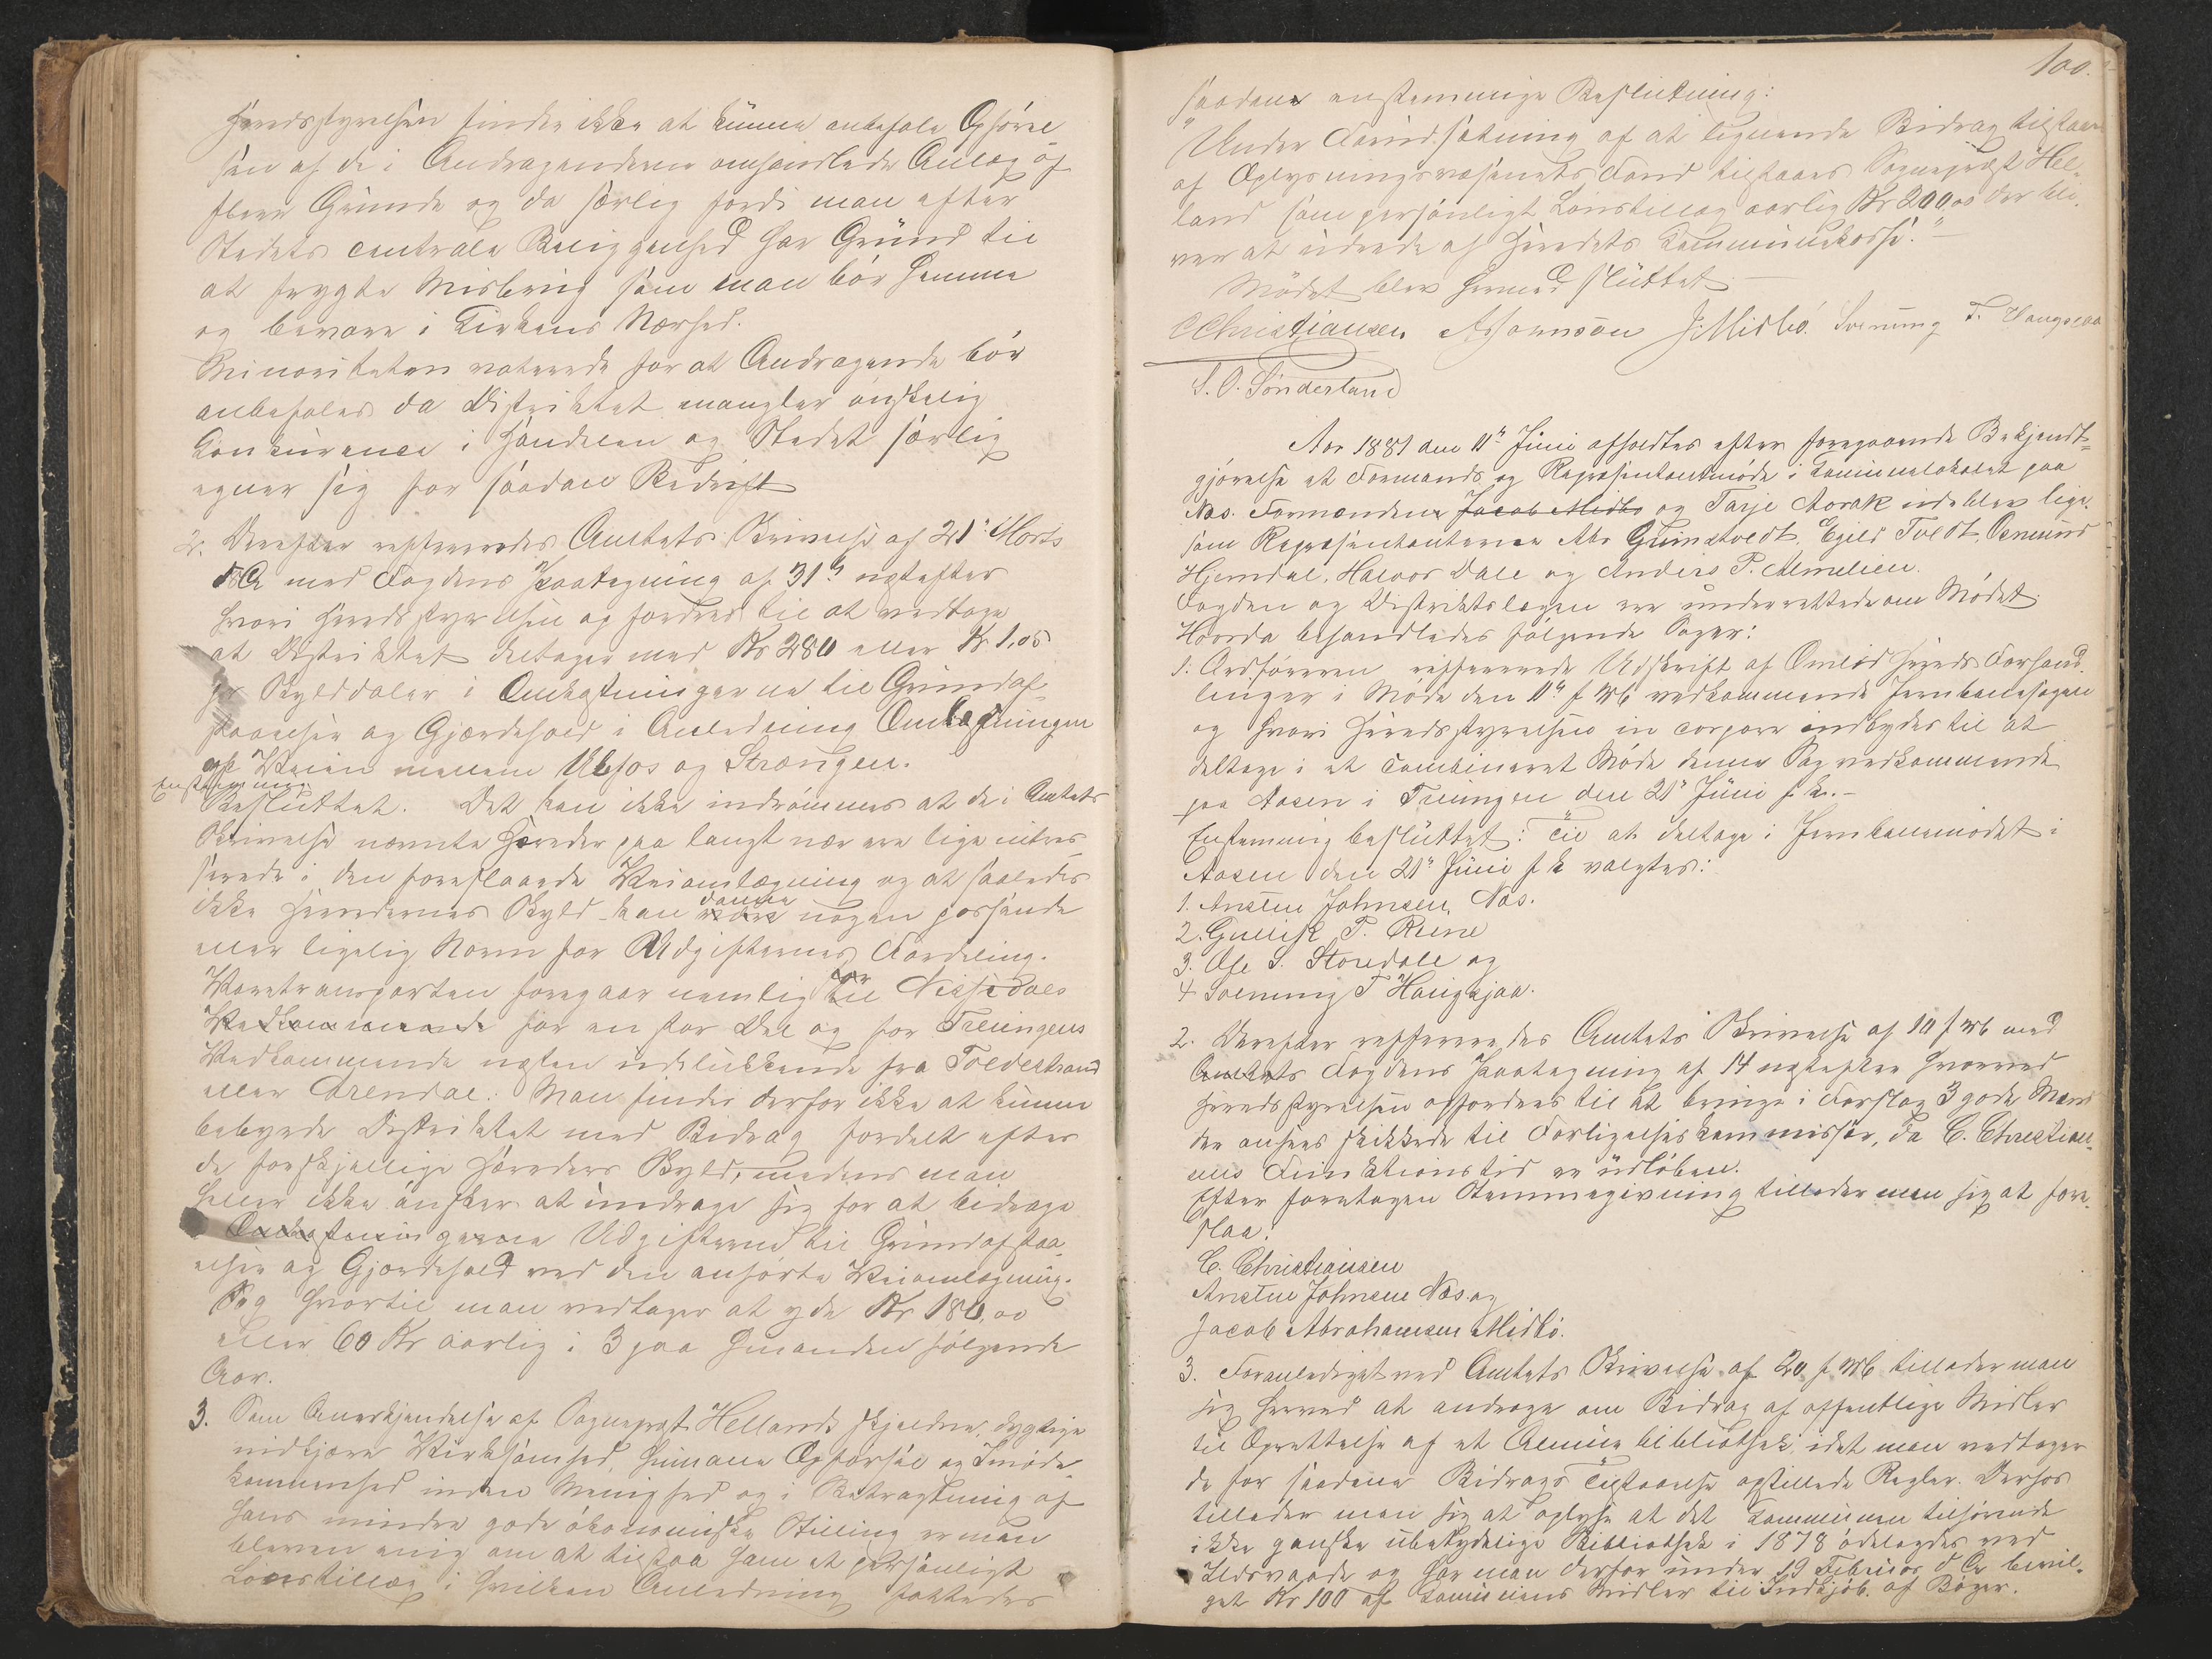 Heredsstyrelsen finder ikke at kunne anbefale Opførel
sen af de i Andragenderne omhandlede Anlæg af
flere Grunde og da særlig fordi man efter
Stedets centrale Beliggenhed har Grund til
at frygte Misbrug som man bør hemme
og bevare i Kirkens Nærhed.
Minoriteten voterede for at Andragende bør
anbefales da Distriktet mangler ønskelig
Konkurance i Handelen og Stedet særlig
egner sig for saadan Bedrift
2. Derefter refereredes Amtets Skrivelse af 21' Marts
d A med Fogdens Paategning af 31' næstefter
hvori Heredsstyrelsen opfordres til at vedtage
at Distriktet deltager med Kr 280 eller Kr 1.05
pr Skylddaler i Omkostningerne til Grundaf-
staaelsen og Gjærdehold i Anledning Omlægningen
af Veien mellem Ulefos og Strængen.
Enstemmig
Besluttet. Det kan ikke indrømmes at de i Amtets
Skrivelse nævnte Hereder paa langt nær ere lige intres
serede i den foreslaaede Veiomlægning og at saaledes
ikke Heredernes Skyld kan danne nogen passende
eller ligelig Norm for Udgifternes Fordeling.
Varetransporten foregaar nemlig for Nissedals
Vedkommende for en stor Del og for Treungens
Vedkommende næsten udelukkende fra Tvedestrand
eller Arendal. Man finder derfor ikke at kunne
bebyrde Distriktet med Bidrag fordelt efter
de forskjellige Hereders Skyld, medens man
heller ikke ønsker at unddrage sig for at bidrage
Omkostningerne Udgifterne til Grundafstaa
elsen og Gjærdehold ved den anførte Veiomlægning.
Sag hvortil man vedtager at yde Kr 180,00
eller 60 Kr aarlig i 3 paa hinanden følgende
Aar.
3. Som Anerkjendelse af Sognepræst Hellands skjeldne, dygtige
nidkjære Virksomhed, humane Opførsel og Imøde
kommenhed inden Menighed og i Betragtning af
hans mindre gode økonomiske Stilling er man
bleven enig om at tilstaa ham et personligt
Lønstillæg i hvilken Anledning fattedes
100.
saadan enstemmige Beslutning:
"Under Forudsætning af at lignende Bidrag tilstaaes
af Oplysningsvæsenets Fond tilstaaes Sognepræst Hel-
land som personligt Lønstillæg aarlig Kr 200,00 der bli-
ver at udrede af Heredets Kommunekasse."
Mødet blev hermed sluttet
C Christiansen AJohnsøn J. Midbø. Svenung T. Haugsjaa
S. O. Sønderland
Aar 1881 den 11' Juni afholdtes efter foregaaende Bekjendt-
gjørelse et Formands og Repræsentantmøde i Communelokalet paa
Næs. Formændene Jacob Midbø og Tarje Aarak udeblev lige-
som Repræsentanterne Abr Grimstvedt, Egild Tvedt, Osmund
Hjemdal, Halvor Dale og Anders P. Almelien.
Fogden og Distriktslægen ere underrettede om Mødet.
Hvorda behandledes følgende Sager:
1. Ordføreren refererede Udskrift af Omlid Hereds Forhand
linger i Møde den 11' f Mb vedkommende Jernbanesagen
og hvori Heredsstyrelsen in corpore indbydes til at
deltage i et combineret Møde denne Sag vedkommende
paa Aasen i Treungen den 21' Juni f. k.-
Enstemmig besluttet: Til at deltage i Jernbanemødet i
Aasen den 21' Juni f k valgtes:
1. Anstin Johnsen Næs.
2. Gullik P. Rune
3. Ole S. Storedale og
4 Svenning T Haugsjaa.
2. Derefter refereredes Amtets Skrivelse af 10 f Mb med
Amtets Fogdens Paategning af 14 næstefter hvorved
Heredsstyrelsen opfordres til at bringe i Forslag 3 gode Mænd
der ansees skikkede til Forligelseskommissær, da C. Christian-
sens Funktionstid er udløben.
Efter foretagen Stemmegivning tillader man sig at fore-
slaa:
C. Christiansen
Anstin Johnsen Næs og
Jacob Abrahamsen Midbø.
3. Foranlediget ved Amtets Skrivelse af 20 f Mb tillader man
sig herved at andrage om Bidrag af offentlige Midler
til Oprettelse af et Almuebibliothek, idet man vedtager
de for saadanne Bidrags Tilstaaelse opstillede Regler. Derhos
tillader man sig at oplyse at det Kommunen tilhørende
ikke ganske ubetydelige Bibliothek i 1878 ødelagdes ved
Ildsvaade og har man derfor under 19 Februar d A bevil-
get Kr 100 af Kommunens Midler til Indkjøb af Bøger.